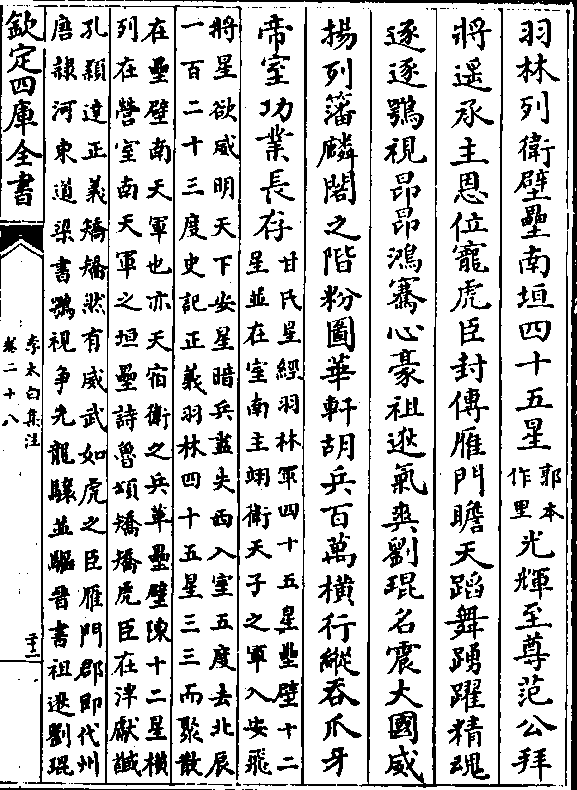 羽林列衛壁壘南垣四十五星郭本作里光輝至尊范公拜
將遥承主恩位寵虎臣封傳雁門瞻天蹈舞踴躍精魂
逐逐鶚視昂昂鴻騫心豪祖逖氣爽劉琨名震大國威
揚列藩麟閣之階粉圖華軒胡兵百萬橫行縱吞爪牙
帝室功業長存甘氏星經羽林軍四十五星壘壁十二
星並在室南主翊衛天子之軍入安飛
將星欲威明天下安星暗兵盡失西入室五度去北辰
一百二十三度史記正義羽林四十五星三三而聚散
在壘壁南天軍也亦天宿衛之兵革壘壁陳十二星橫
列在營室南天軍之垣壘詩魯頌矯矯虎臣在泮獻馘
孔穎達正義矯矯然有威武如虎之臣雁門郡即代州
唐隸河東道梁書鶚視爭先龍驤並驅晉書祖逖劉琨
欽定四庫全書
李太白集注
卷二十八